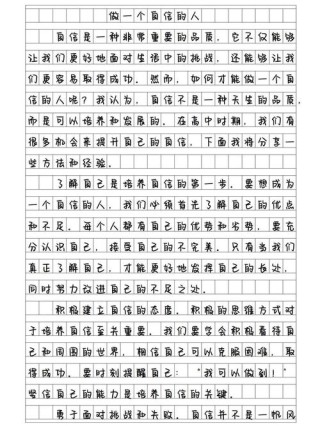 做一个自信的人
自信是一种非常重要的品质，它不仅能够
让我们更好地面对生活中的挑战，还能够让我
们更容易取得成功。然而，如何才能做一个自
信的人呢？我认为，自信不是一种天生的品质，
而是可以培养和发展的。在高中时期，我们有
很多机会来提升自己的自信，下面我将分享一
些方法和经验。
了解自己是培养自信的第一步。要想成为
一个自信的人，我们必须首先了解自己的优点
和不足。每个人都有自己的优势和劣势，要充
分认识自己，接受自己的不完美。只有当我们
真正了解自己，才能更好地发挥自己的长处，
同时努力改进自己的不足之处。
积极建立自信的态度。积极的思维方式对
于培养自信至关重要。我们要学会积极看待自
己和周围的世界，相信自己可以克服困难，取
得成功。要时刻提醒自己：“我可以做到！”
坚信自己的能力是培养自信的关键。
勇于面对挑战和失败。自信并不是一帆风